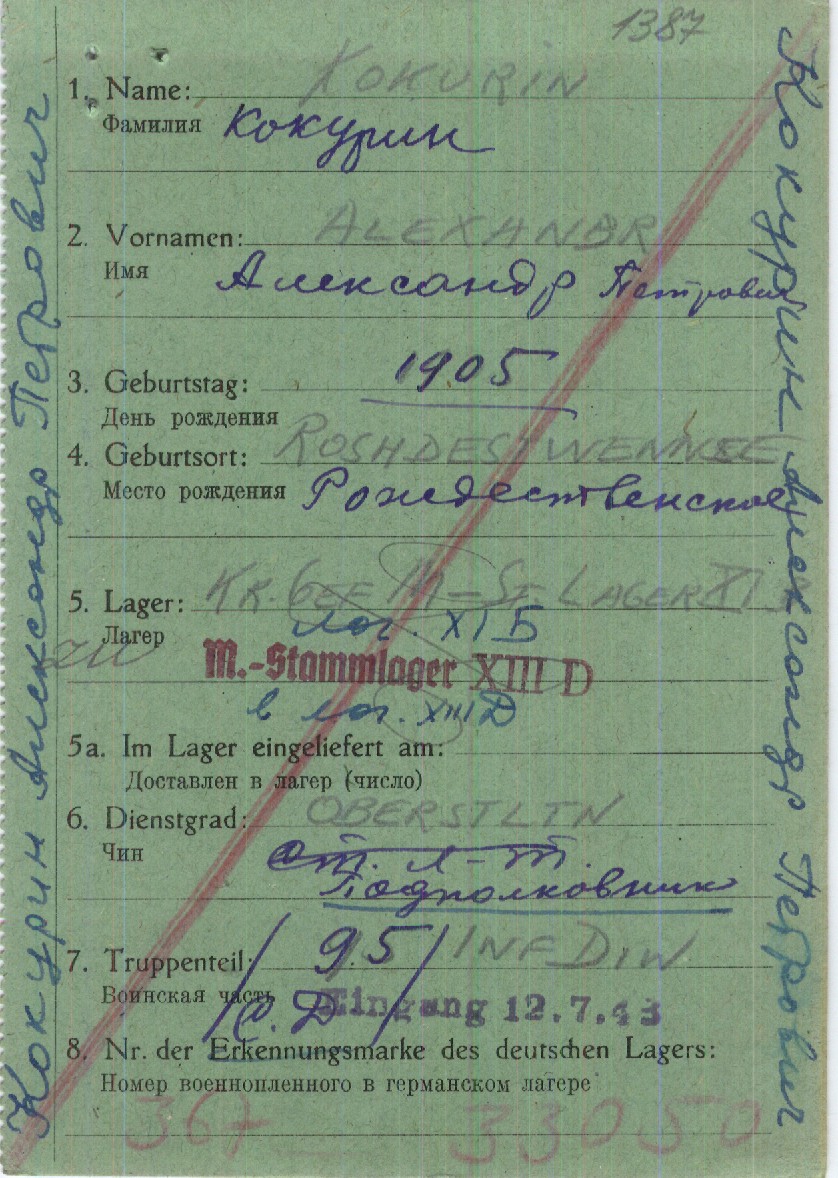 1387
1. Name: KOKURIN
Фамилия Кокурин
2. Vornamen: ALEXANDR
Имя Александр Петрович
3. Geburtstag: 1905
День рождения
4. Geburtsort: ROSHDESTWENNSEE
Место рождения Рождественское
5. Lager: KR. GEF M-ST. LAGER XI B
Лагерь лаг. XI Б
M.-Stammlager XIII D
в лаг. XIII Д
5a. Im Lager eingeliefert am:
Доставлен в лагер (число)
6. Dienstgrad: OBERSTLTN
Чин ст. л-т.
Подполковник
7. Truppenteil: 95 INF DIW
Воинская часть с. Д Eingang 12.7.43
8. Nr. der Erkennungsmarke des deutschen Lagers:
Номер военнопленного в германском лагере
367 33050
Кокурин Александр Петрович
Кокурин Александр Петрович